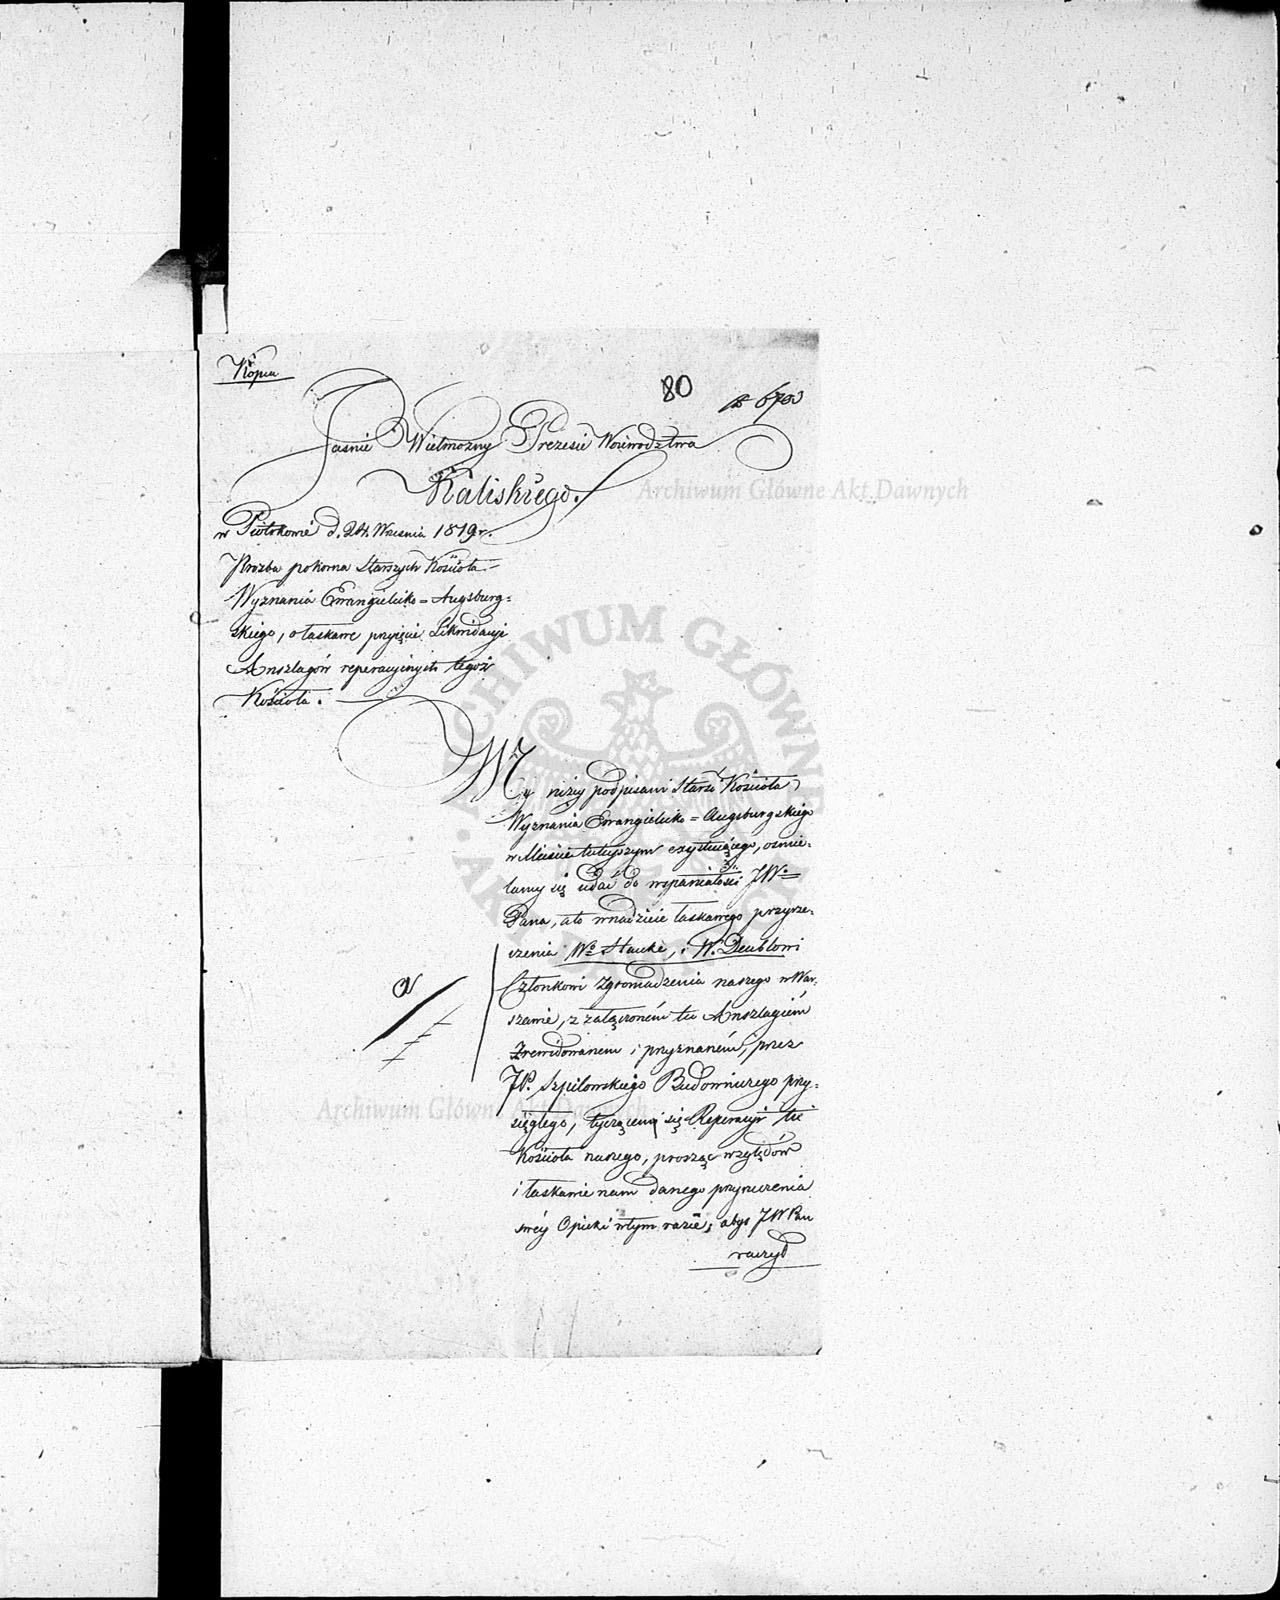 Kopia
80
6793
Jaśnie Wielmożny Prezesie Woiewództwa
Kaliskiego.
w Piotrkowie d. 24. Wrzesnia 1819 r.
Prozba pokorna Starszych Kościoła
Wyznania Ewangielicko = Augsburg=
skiego, o łaskawe przyięcie Likwidacyi
Anszlagów reperacyinych tegoż
Kościoła.
My niżey podpisani Starsi Kościoła
Wyznania Ewangielicko = Augsburgskiego
w Mieście tuteyszym exystuiącego, ośmie=
lamy się udać do wspaniałości JWo
Pana, a to w nadzieie łaskawego przyrze=
czenia Wo Hauke, i W. Deublowi
Członkowi Zgromadzenia naszego w War=
szawie, z załączonem tu Anszlagiem
Zrewidowanem i przyznanem, przez
JP. Szpilowskiego Budowniczego przy=
sięgłego, tyczącemi się Reperacyi tu
Kościoła naszego, prosząc względów
i łaskawie nam danego przyrzeczenia
swéy Opieki w tym razie, abyś JW Pan
raczył
Archiwum Główne Akt Dawnych
ARCHIWUM GŁÓWNE AKT DAWNYCH
Archiwum Główne Akt Dawnych